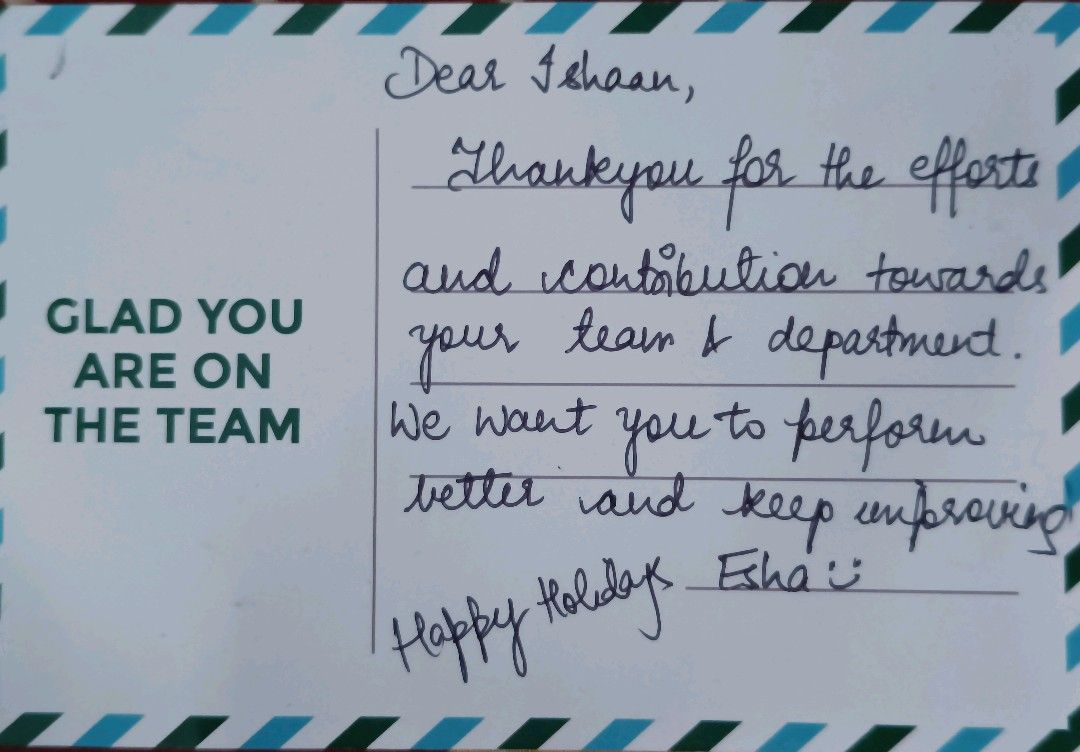 GLAD YOU
ARE ON
THE TEAM
Dear Ishaan,
Thankyou for the efforts
and contribution towards
your team & department.
We want you to perform
better and keep improving
Happy Holidays
Esha :)